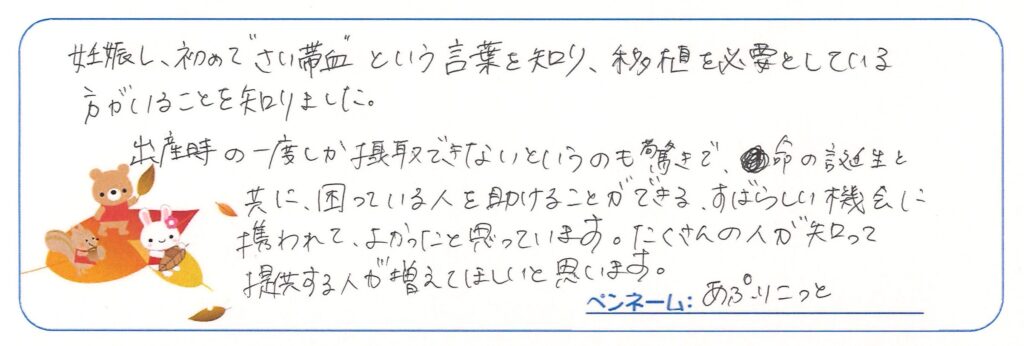 妊娠し、初めて"さい帯血"という言葉を知り、移植を必要としている
方がいることを知りました。
出産時の一度しか摂取できないというのも驚きで、命の誕生と
共に、困っている人を助けることができる、すばらしい機会に
携われて、よかったと思っています。たくさんの人が知って
提供する人が増えてほしいと思います。
ペンネーム：あぷりこっと